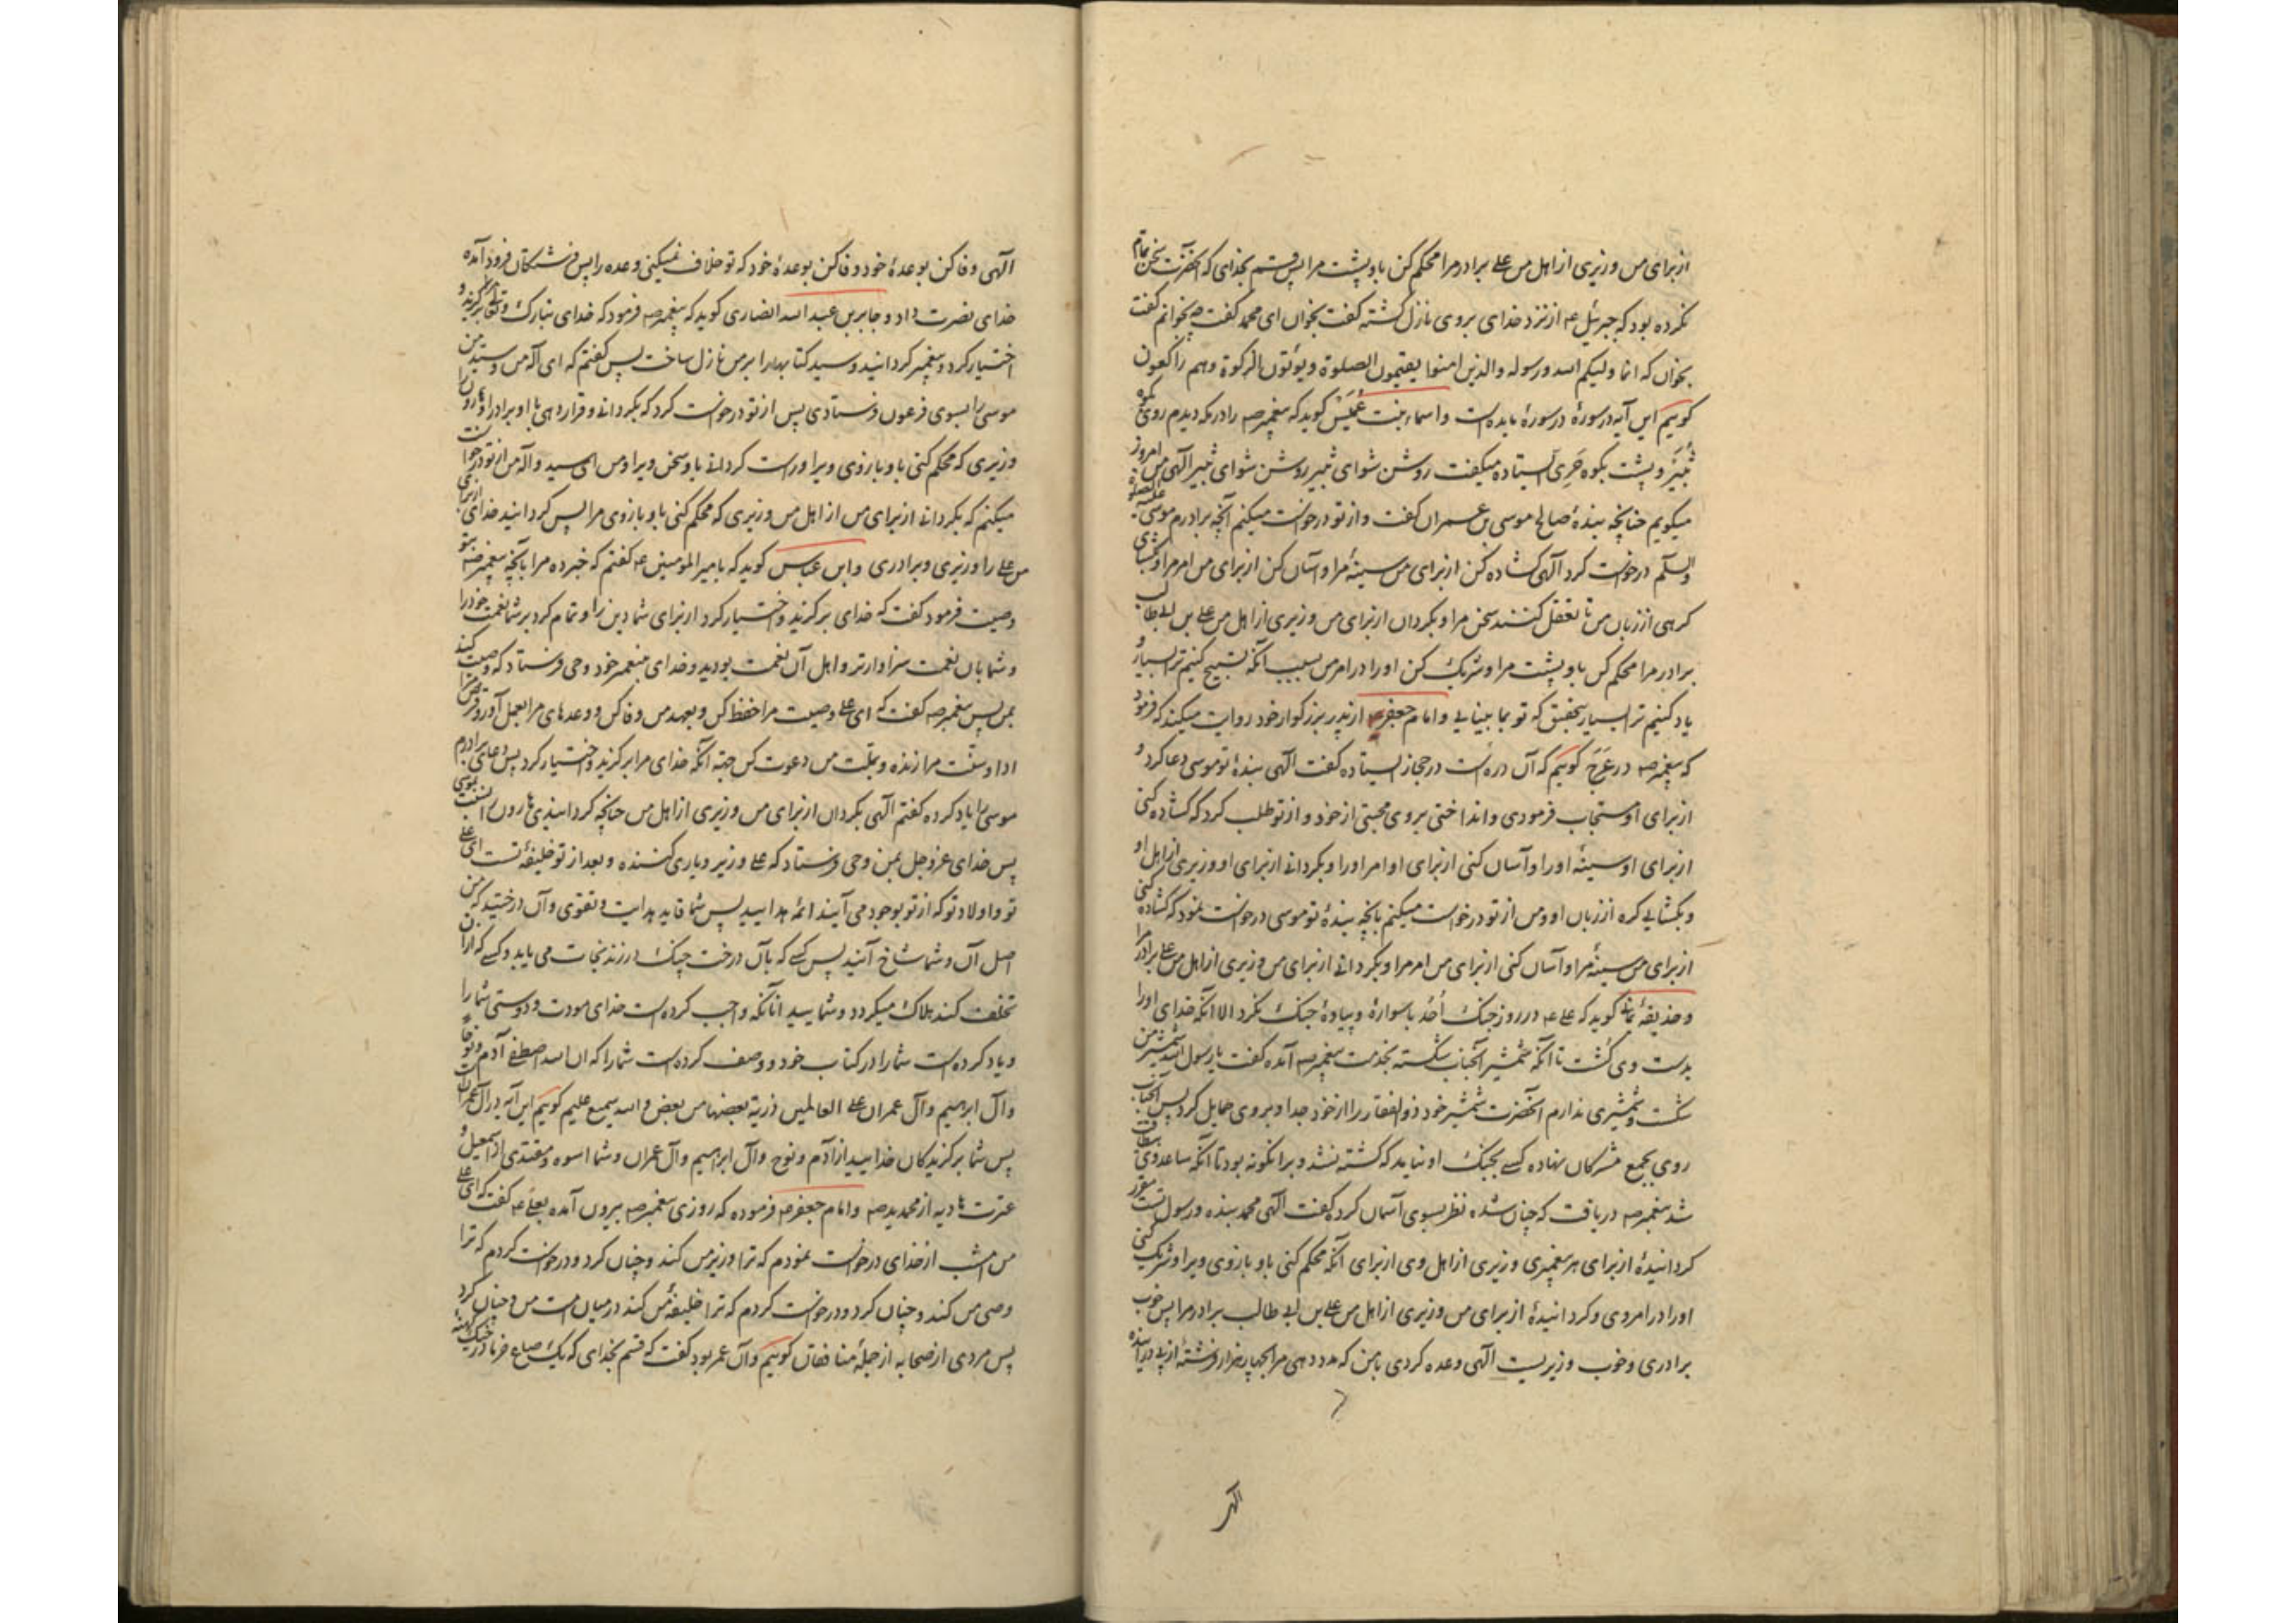 ازبرای من وزیری از اهل من علی برادر مرا محکم کن باو پشت مرا پس قسم بخدای که آنحضرت سخن تمام
نکرده بود که جبرئیل عه از نزد خدای بروی نازل گشته گفت بخوان ای محمد گفت چه بخوانم گفت
بخوان که انما ولیکم الله ورسوله والذین امنوا یقیمون الصلوة ویؤتون الزکوة وهم راکعون
گوییم این آیه در سورهٔ در سورهٔ مایده است واسماء بنت عُمَیس گوید که پیغمبر صه را در مکه دیدم روی بکوه
ثَبیَر و پشت بکوه حَرِی ایستاده میگفت روشن شو ای ثبیر روشن شو ای ثبیر آلهی من امروز
میگویم چنانچه بندهٔ صالح موسی بن عمران گفت و از تو درخواست میکنم آنچه برادرم موسی علیه الصلوة
والسلم درخواست کرد آلهی گشاده کن ازبرای من سینهٔ مرا و آسان کن ازبرای من امر مرا و بگشای
گرهی از زبان من تا تعقل کنند سخن مرا و بگردان ازبرای من وزیری از اهل من علی بن ابی طالب
برادر مرا محکم کن باو پشت مرا و شریک کن او را در امر من بسبب آنکه تسبیح کنیم ترا بسیار و
یاد کنیم ترا بسیار بتحقیق که تو بما بینایی و امام جعفر عه از پدر بزرگوار خود روایت میکند که فرمود
که پیغمبر صه در عَرَج گوییم که آن دره است در حجاز ایستاده گفت آلهی بندهٔ تو موسی دعا کرد و
ازبرای او مستجاب فرمودی و انداختی بروی محبتی از خود و از تو طلب کرد که گشاده کنی
ازبرای او سینهٔ او را و آسان کنی ازبرای او امر او را و بگردانی ازبرای او وزیری از اهل او
و بگشایی گره از زبان او و من از تو درخواست میکنم بآنچه بندهٔ تو موسی درخواست نمود که گشاده کنی
ازبرای من سینهٔ مرا و آسان کنی ازبرای من امر مرا و بگردانی ازبرای من وزیری از اهل من علی برادر مرا
و حذیفهٔ یمانی گوید که علی عه در روز جنگ اُحُد با سوارهٔ و پیادهٔ جنگ نکرد الا آنکه خدای او را
بدست وی کُشت تا آنکه شمشیر آنجناب شکسته بخدمت پیغمبر صه آمده گفت یا رسول الله شمشیر من
شکست و شمشیری ندارم آنحضرت شمشیر خود ذوالفقار را از خود جدا و بروی حمایل کرد پس آنجناب
روی بجمع مشرکان نهاده کسی بجنگ او نیامد که کشته نشد و برانگونه بود تا آنکه ساعد وی بیطاقت
شد پیغمبر صه دریافت که چنان شده نظر بسوی آسمان کرد گفت آلهی محمد بنده و رسول تست مقرر
گردانیدهٔ ازبرای هر پیغمبری وزیری از اهل وی ازبرای آنکه محکم کنی باو بازوی ویرا و شریک کنی
او را در امر وی و گردانیدهٔ ازبرای من وزیری از اهل من علی بن ابی طالب برادر مرا پس خوب
برادری و خوب وزیریست آلهی وعده کردی با من که مدد دهی مرا بچهار هزار فرشته از پی درآینده
آلهی وفا کن بوعدهٔ خود وفا کن بوعدهٔ خود که تو خلاف نمیکنی وعده را پس فرشتگان فرود آمده
خدای نصرت داد و جابر بن عبد الله انصاری گوید که پیغمبر صه فرمود که خدای تبارک وتعالی مرا برگزید و
اختیار کرد و پیغمبر گردانید و سید کتابها را بر من نازل ساخت پس گفتم که ای اله من و سید من
موسی را بسوی فرعون فرستادی پس از تو درخواست کرد که بگردانی و قرار دهی با او برادر او هارون را
وزیری که محکم کنی باو بازوی ویرا و راست گردانی باو سخن ویرا و من ای سید و اله من از تو درخواست
میکنم که بگردانی ازبرای من از اهل من وزیری که محکم کنی باو بازوی مرا پس گردانید خدای ازبرای
من علی را وزیری و برادری و ابن عباس گوید که بامیر المومنین عه گفتم که خبر ده مرا بآنچه پیغمبر صه بتو
وصیت فرمود گفت که خدای برگزید و اختیار کرد ازبرای شما دین را و تمام کرد بر شما نعمت خود را
و شما بآن نعمت سزاوارتر و اهل آن نعمت بودید و خدای به پیغمبر خود وحی فرستاد که وصیت کند
بمن پس پیغمبر صه گفت که ای علی وصیت مرا حفظ کن و بعهد من وفا کن و وعدهای مرا بعمل آور و قرض مرا
ادا و سنّت مرا زنده و بملّت من دعوت کن جهة آنکه خدای مرا برگزید و اختیار کرد پس دعای برادرم
موسی را یاد کرده گفتم آلهی بگردان ازبرای من وزیری از اهل من چنانچه گردانیدی هارون را نسبت بموسی
پس خدای عزوجل بمن وحی فرستاد که علی وزیر و یاری کننده و بعد از تو خلیفهٔ تست ای علی
تو و اولاد تو که از تو بوجود می آیند ائمه هدایید پس شما قاید هدایت و تقوی و آن درختید که من
اصل آن و شما شاخ آنید پس کسی که بآن درخت چنگ درزند نجات می یابد و کسی که از آن
تخلف کند هلاک میگردد و شمایید آنانکه واجب کرده است خدای مودت و دوستی شما را
و یاد کرده است شما را در کتاب خود و وصف کرده است شما را که ان الله اصطفی آدم ونوحا
وآل ابرهیم وآل عمران علی العالمین ذریة بعضها من بعض والله سمیع علیم گوییم این آیه در آل عمران است
پس شما برگزیدگان خدایید از آدم ونوح وآل ابراهیم وآل عمران و شما اسوه و مقتدی از اسمعیل و
عترت هادیه از محمدید صه و امام جعفر عه فرموده که روزی پیغمبر صه بیرون آمده بعلی عه گفت که ای علی
من امشب از خدای درخواست نمودم که ترا وزیر من کند و چنان کرد و درخواست کردم که ترا
وصی من کند و چنان کرد و درخواست کردم که ترا خلیفهٔ من کند در میان امت من و چنان کرد
پس مردی از صحابه از جملهٔ منافقان گوییم و آن عمر بود گفت که قسم بخدای که یک صاع خرما در خیک کهنه